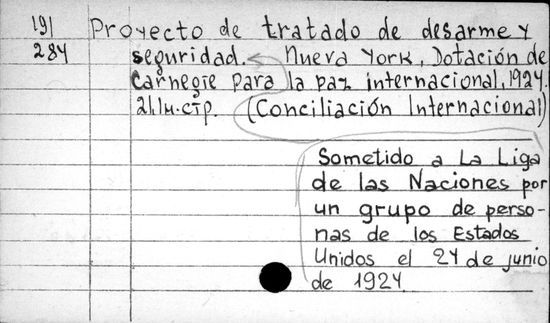 191 Proyecto de tratado de desarme y
284 seguridad. Nueva York, Dotación de
Carnegie para la paz internacional, 1924.
21.1u.ctp. (Conciliación Internacional)
Sometido a La Liga
de las Naciones por
un grupo de perso-
nas de los Estados
Unidos el 24 de junio
de 1924